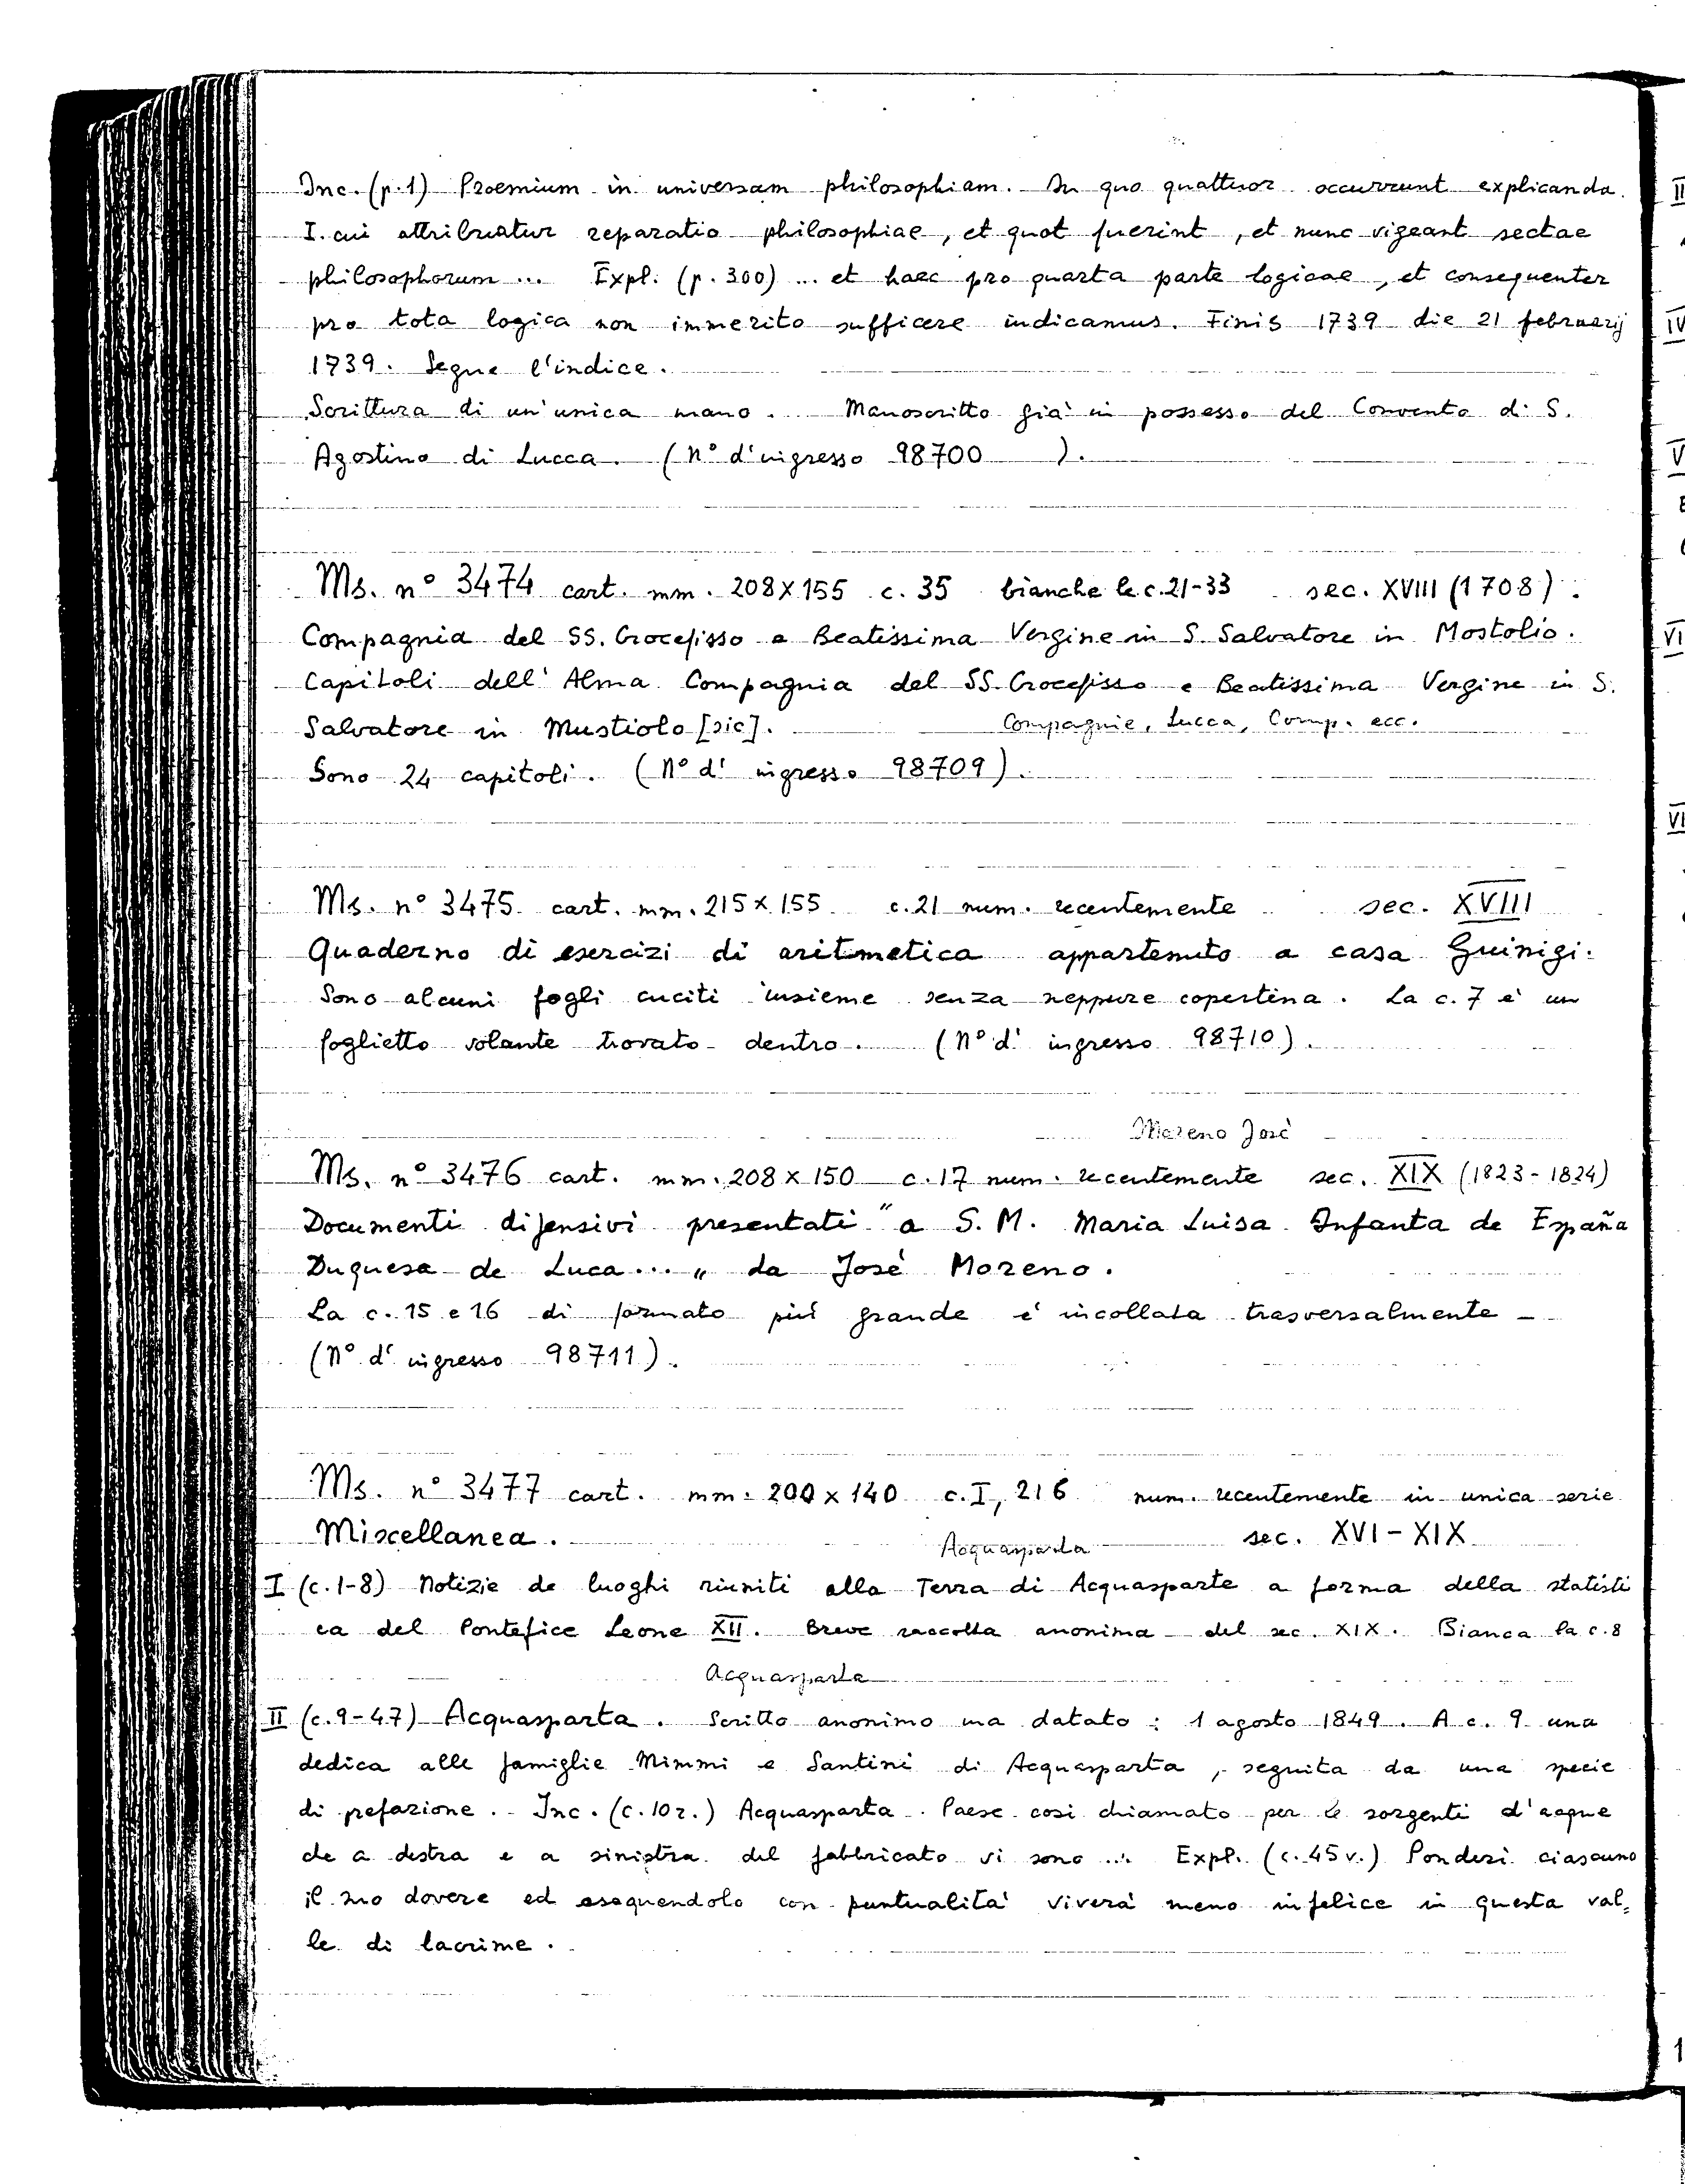 Inc. (p.1) Proemium in universam philosophiam. In quo quattuor occurrunt explicanda.
I. cui attribuatur reparatio philosophiae, et quot fuerint, et nunc vigeant sectae
philosophorum ... Expl. (p. 300) ... et haec pro quarta parte logicae, et consequenter
pro tota logica non immerito sufficere indicamus. Finis 1739 die 21 februarij
1739. Segue l'indice.
Scrittura di un'unica mano. Manoscritto già in possesso del Convento di S.
Agostino di Lucca. (N° d'ingresso 98700 ).
Ms. n° 3474 cart. mm. 208x155 c. 35 bianche le c. 21-33 sec. XVIII (1708).
Compagnia del SS. Crocefisso e Beatissima Vergine in S. Salvatore in Mostolio.
Capitoli dell'Alma Compagnia del SS. Crocefisso e Beatissima Vergine in S.
Salvatore in Mustiolo [sic]. Compagnie, Lucca, Comp. ecc.
Sono 24 capitoli. (N° d'ingresso 98709).
Ms. n° 3475 cart. mm. 215x155 c. 21 num. recentemente sec. XVIII
Quaderno di esercizi di aritmetica appartenuto a casa Guinigi.
Sono alcuni fogli cuciti insieme senza neppure copertina. La c. 7 è un
foglietto volante trovato dentro. (N° d'ingresso 98710).
Moreno José
Ms. n° 3476 cart. mm. 208x150 c. 17 num. recentemente sec. XIX (1823-1824)
Documenti difensivi presentati "a S. M. Maria Luisa Infanta de España
Duquesa de Luca..." da José Moreno.
La c. 15 e 16 di formato più grande è incollata trasversalmente -
(N° d'ingresso 98711).
Ms. n° 3477 cart. mm. 200x140 c. I, 216 num. recentemente in unica serie
Miscellanea. Acquasparta sec. XVI-XIX
I (c. 1-8) Notizie de luoghi riuniti alla Terra di Acquasparte a forma della statisti
ca del Pontefice Leone XII. Breve raccolta anonima del sec. XIX. Bianca la c. 8
Acquasparta
II (c. 9-47) Acquasparta. Scritto anonimo ma datato: 1 agosto 1849. A c. 9 una
dedica alle famiglie Mimmi e Santini di Acquasparta, seguita da una specie
di prefazione. - Inc. (c. 10r.) Acquasparta. Paese così chiamato per le sorgenti d'acque
che a destra e a sinistra del fabbricato vi sono ... Expl. (c. 45v.) Ponderi ciascuno
il suo dovere ed eseguendolo con puntualità viverà meno infelice in questa val=
le di lacrime.
II
IV
V
VI
VI
1